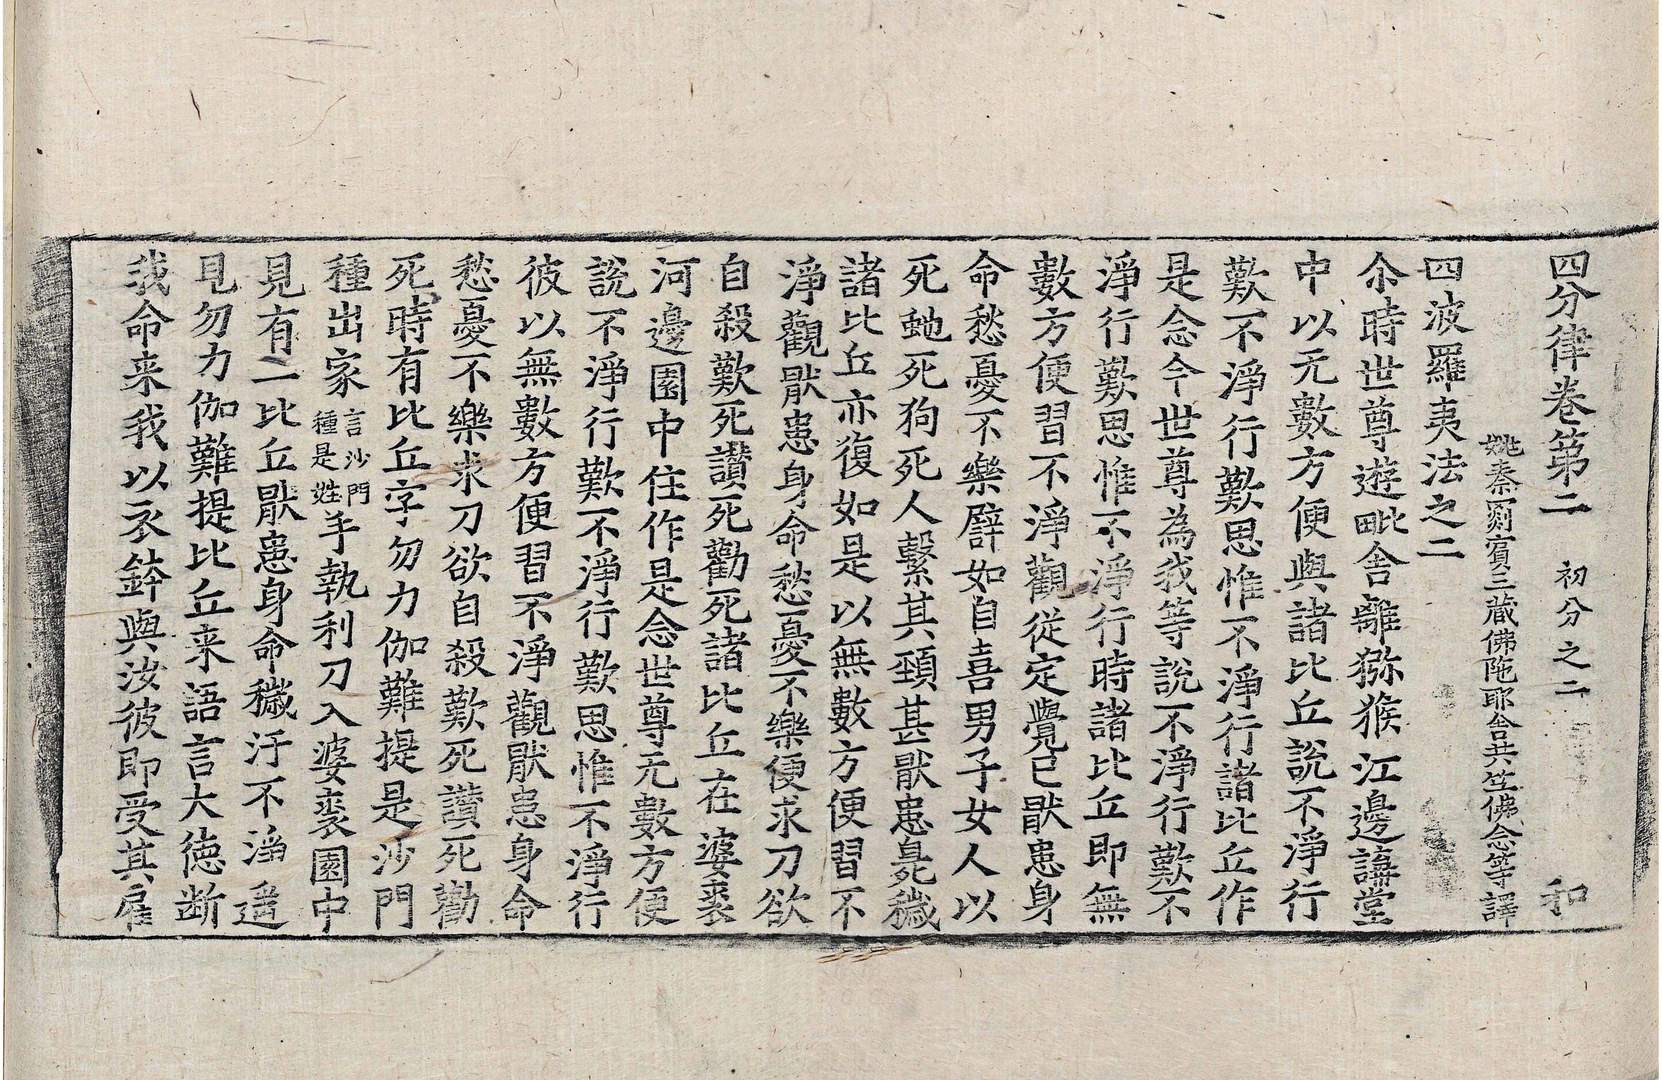 四分律卷第二　初分之二　和
姚秦罽賓三藏佛陁耶舍共竺佛念等譯
四波羅夷法之二
尒時世尊遊毗舍離獼猴江邊講堂
中以无數方便與諸比丘說不淨行
歎不淨行歎思惟不淨行諸比丘作
是念今世尊為我等說不淨行歎不
淨行歎思惟不淨行時諸比丘即無
數方便習不淨觀從定覺已猒患身
命愁憂不樂譬如自喜男子女人以
死虵死狗死人繫其頸甚猒患臭穢
諸比丘亦復如是以無數方便習不
淨觀猒患身命愁憂不樂便求刀欲
自殺歎死讃死勸死諸比丘在婆裘
河邊園中住作是念世尊无數方便
說不淨行歎不淨行歎思惟不淨行
彼以無數方便習不淨觀猒患身命
愁憂不樂求刀欲自殺歎死讃死勸
死時有比丘字勿力伽難提是沙門
種出家言沙門種是姓手執利刀入婆裘園中
見有一比丘猒患身命穢汙不淨遥
見勿力伽難提比丘来語言大徳断
我命来我以衣鉢與汝彼即受其雇